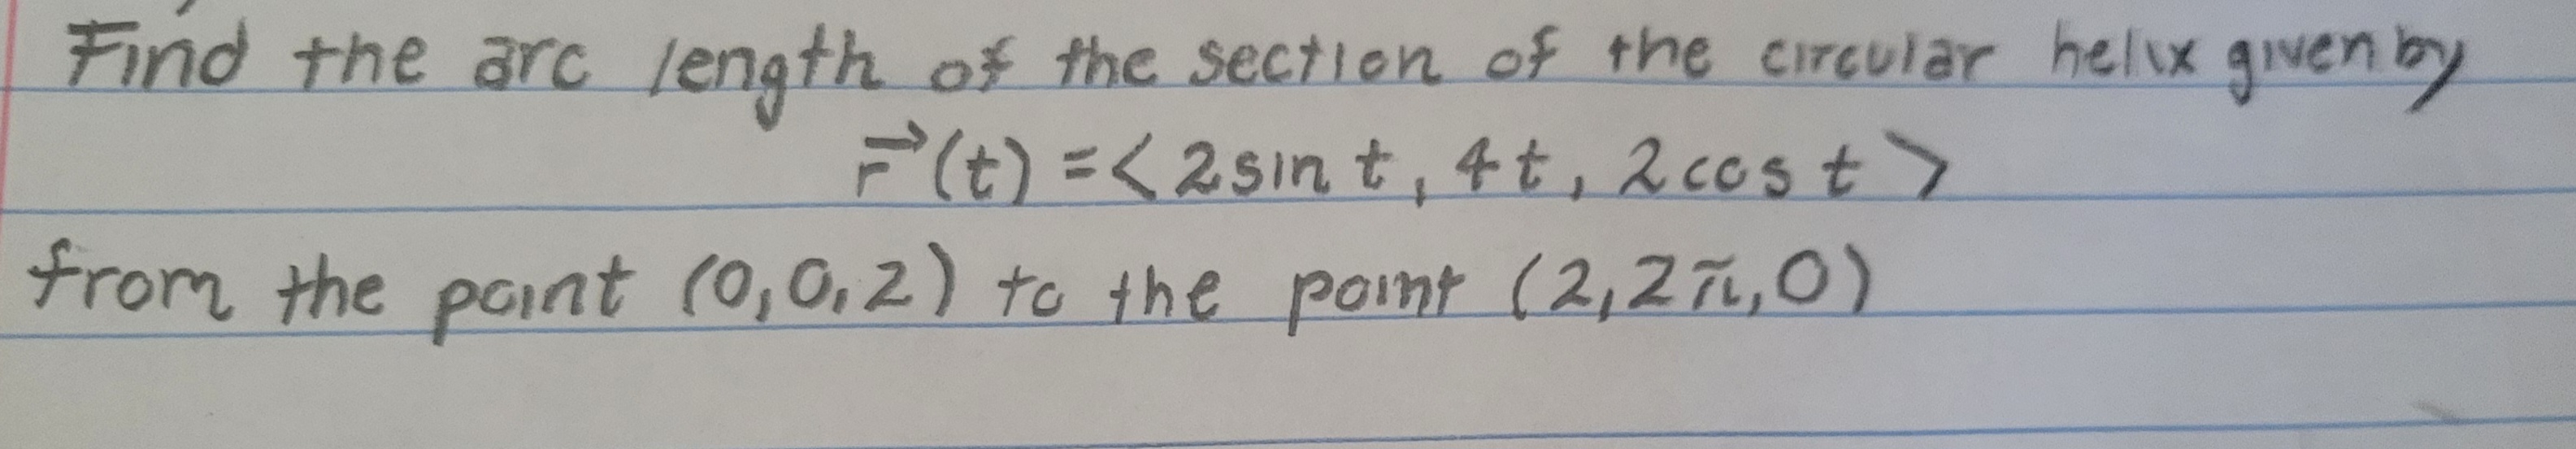 Find the arc length of the section of the circular helix given by
r⃗(t) = < 2 sin t, 4t, 2 cos t >
from the point (0,0,2) to the point (2,2π,0)